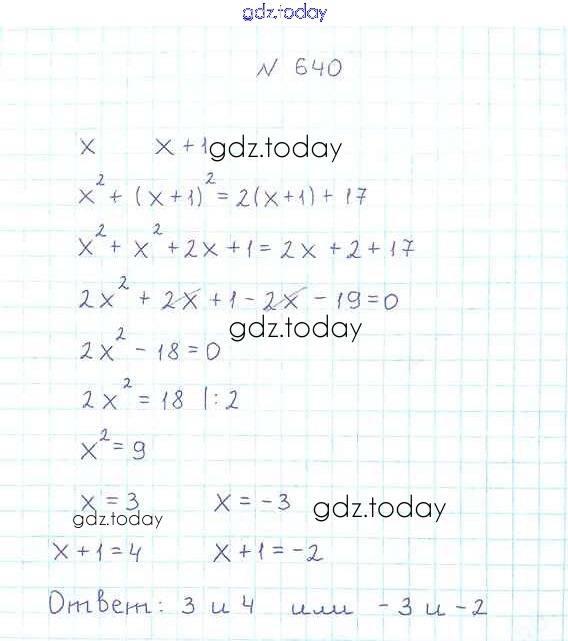 gdz.today
N 640
x x + 1 gdz.today
x² + (x+1)² = 2(x+1) + 17
x² + x² + 2x + 1 = 2x + 2 + 17
2x² + 2x + 1 - 2x - 19 = 0
gdz.today
2x² - 18 = 0
2x² = 18 |: 2
x² = 9
x = 3 x = -3 gdz.today
gdz.today
x + 1 = 4 x + 1 = -2
Ответ: 3 и 4 или -3 и -2